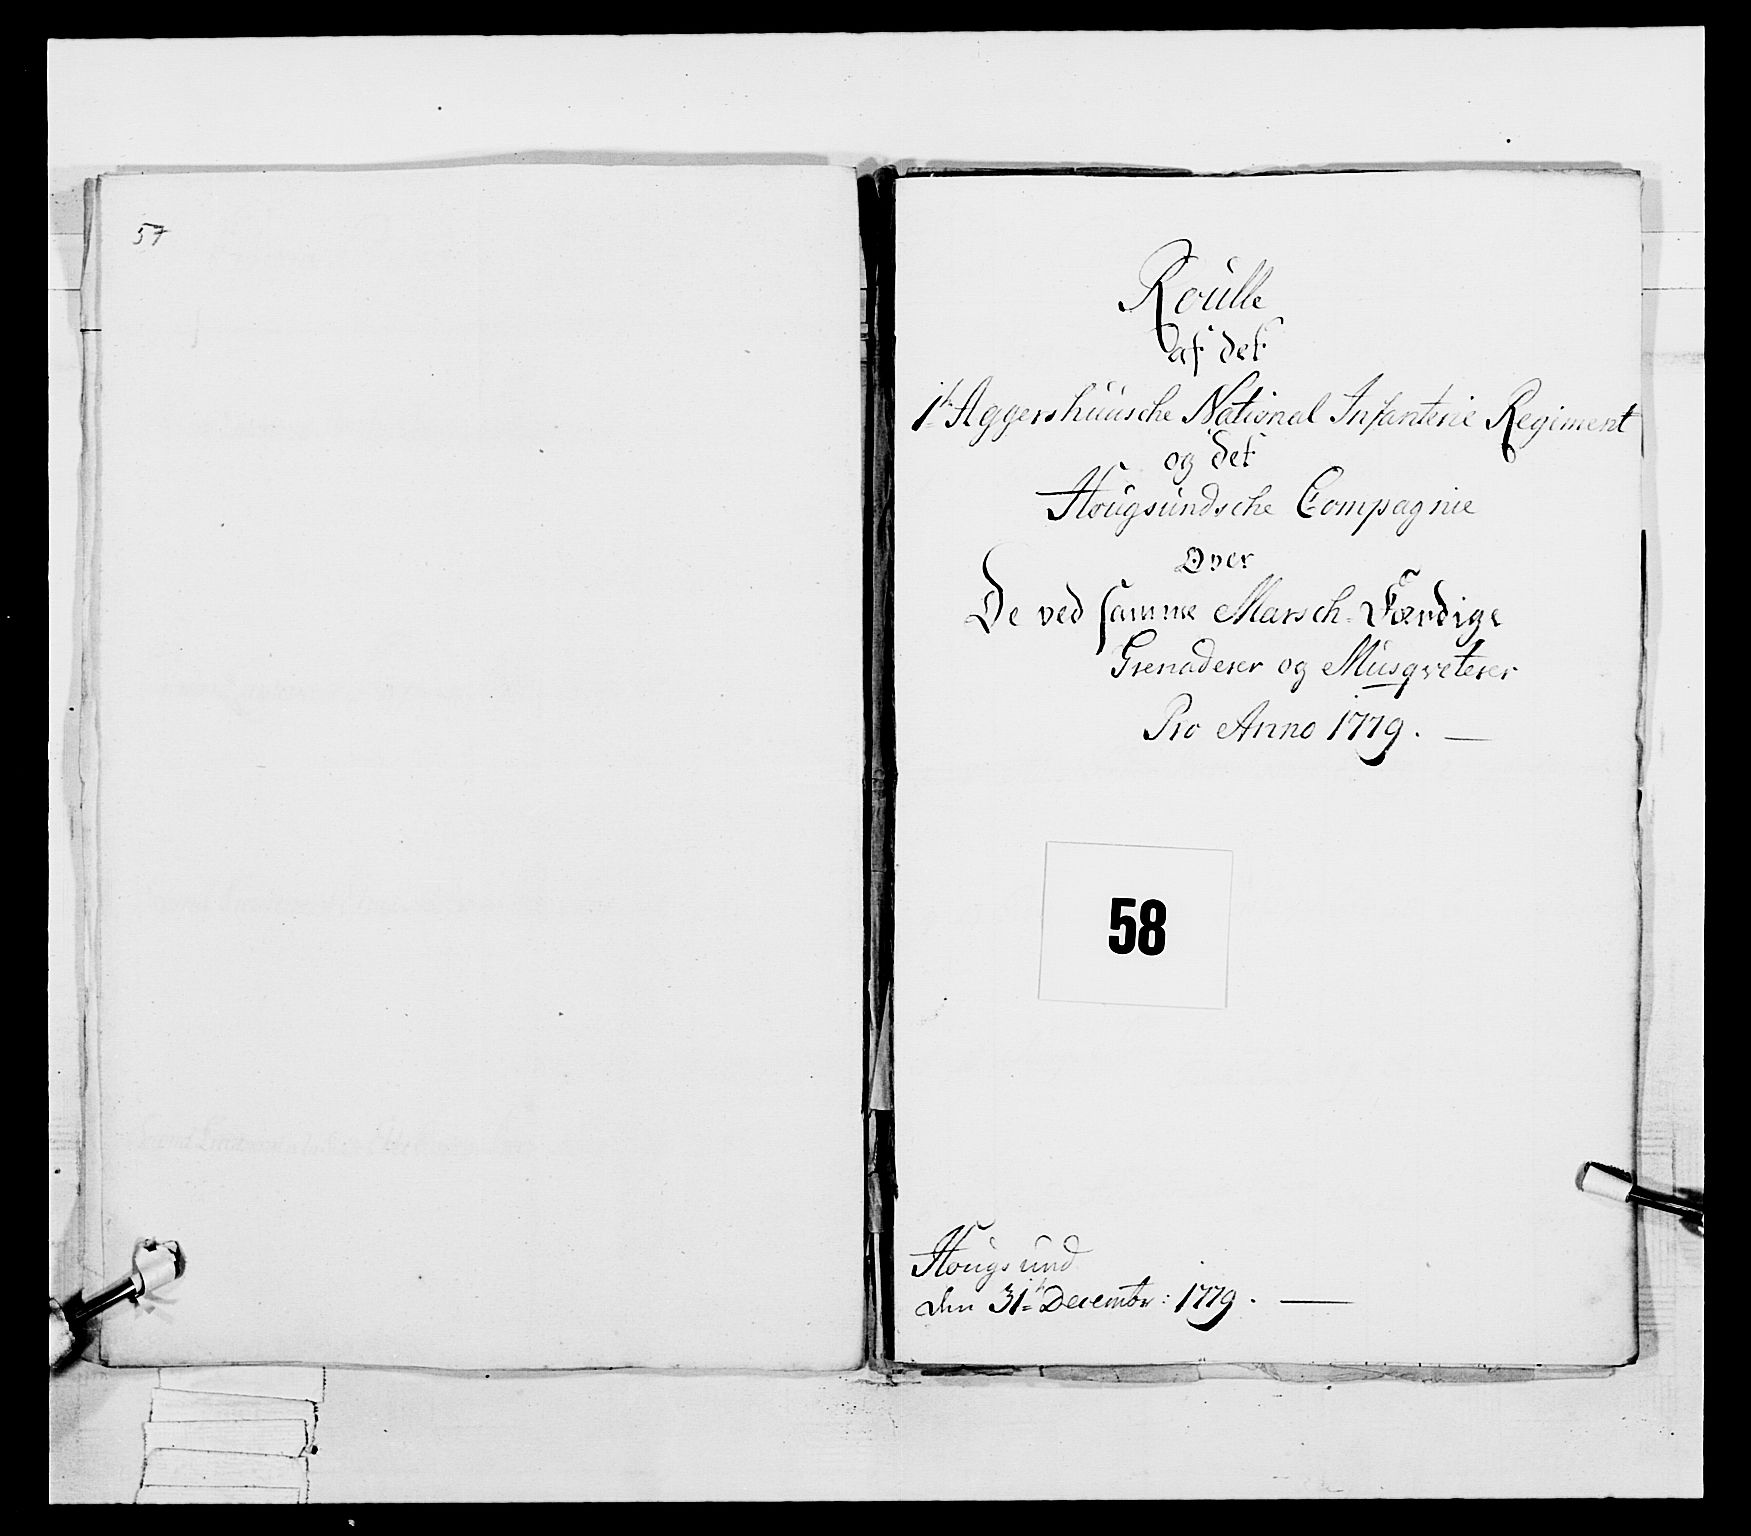 57
Roulle
af det
1te Aggershuusche National Infanterie Regiment
og det
Hougsundsche Compagnie
Over
De ved samme Marsch-Færdige
Grenaderer og Musqveterer
Pro Anno 1779.
58
Hougsund
den 31te Decembr: 1779.